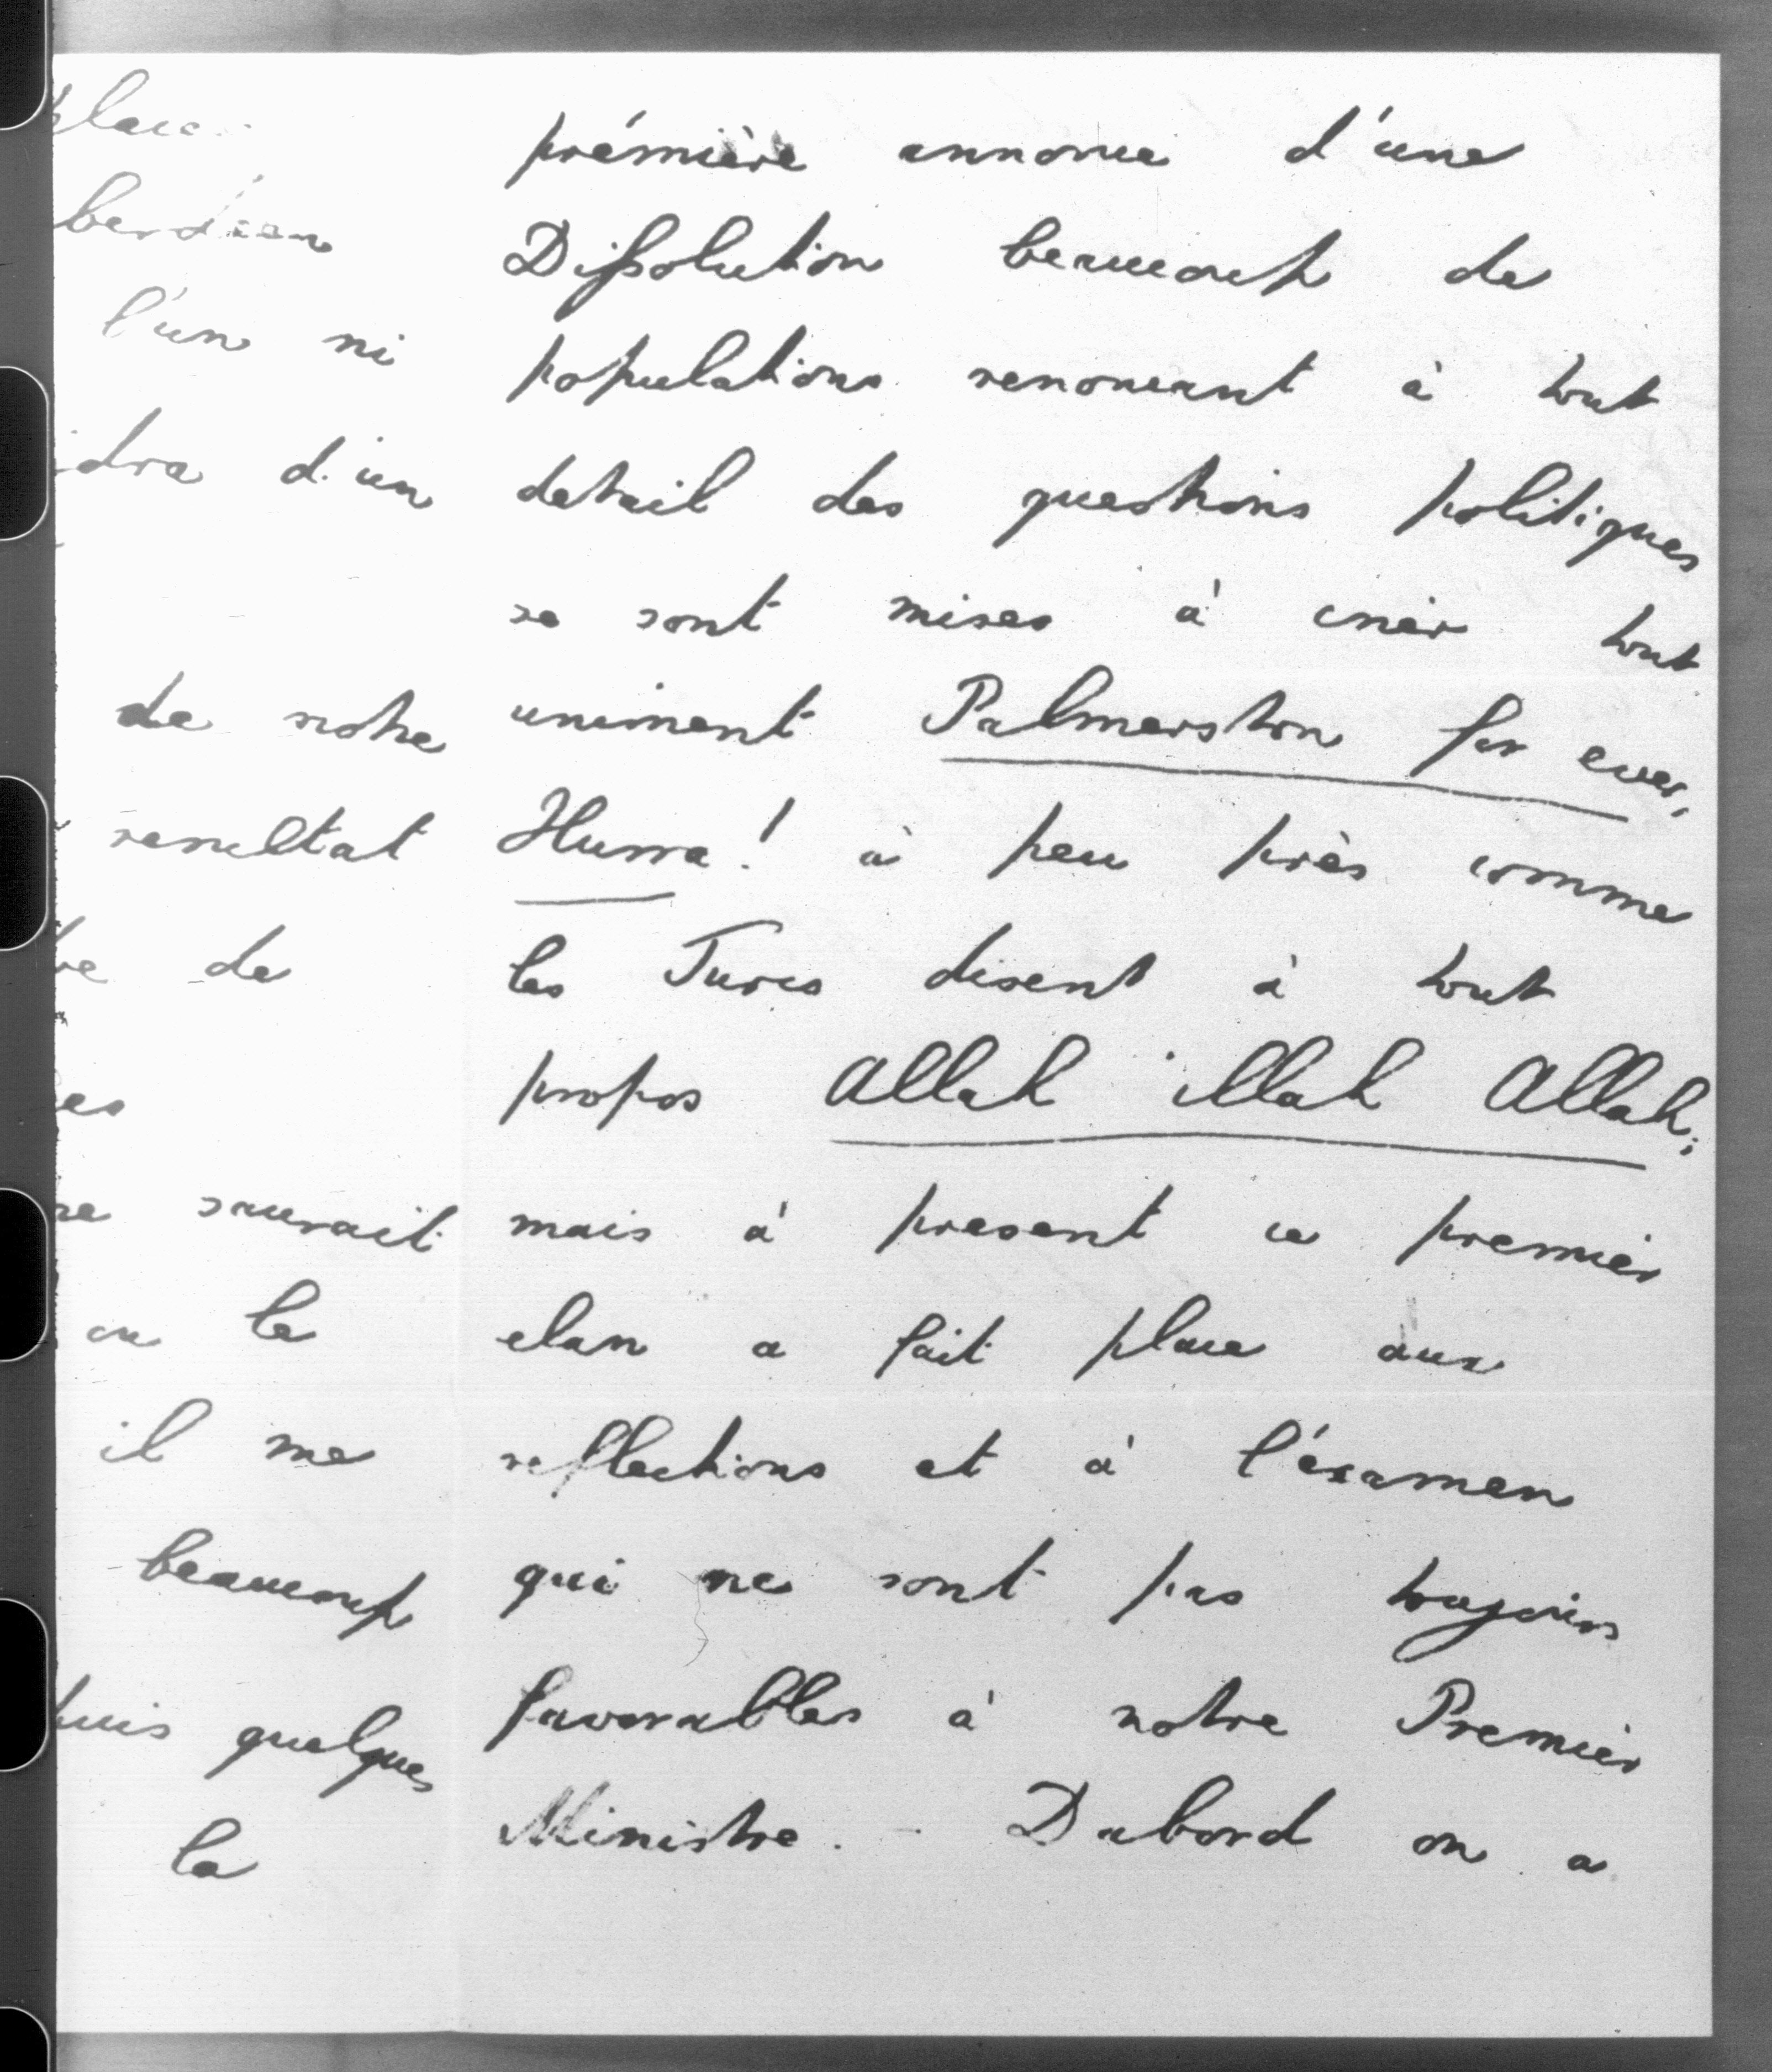 prémière annonce d'une
Dissolution beaucoup de
populations renoncant à tout
detail des questions politiques
se sont mises à crier tout
uniment Palmerston for ever,
Hurra! à peu près comme
les Turcs disent à tout
propos Allah illah Allah;
mais à present ce premier
elan a fait place aux
reflections et à l'éxamen
qui ne sont pas toujours
favorables à notre Premier
Ministre. - Dabord on a
l'un ni
d'un
de notre
resultat
de
saurait
ou le
il me
beaucoup
quelques
la